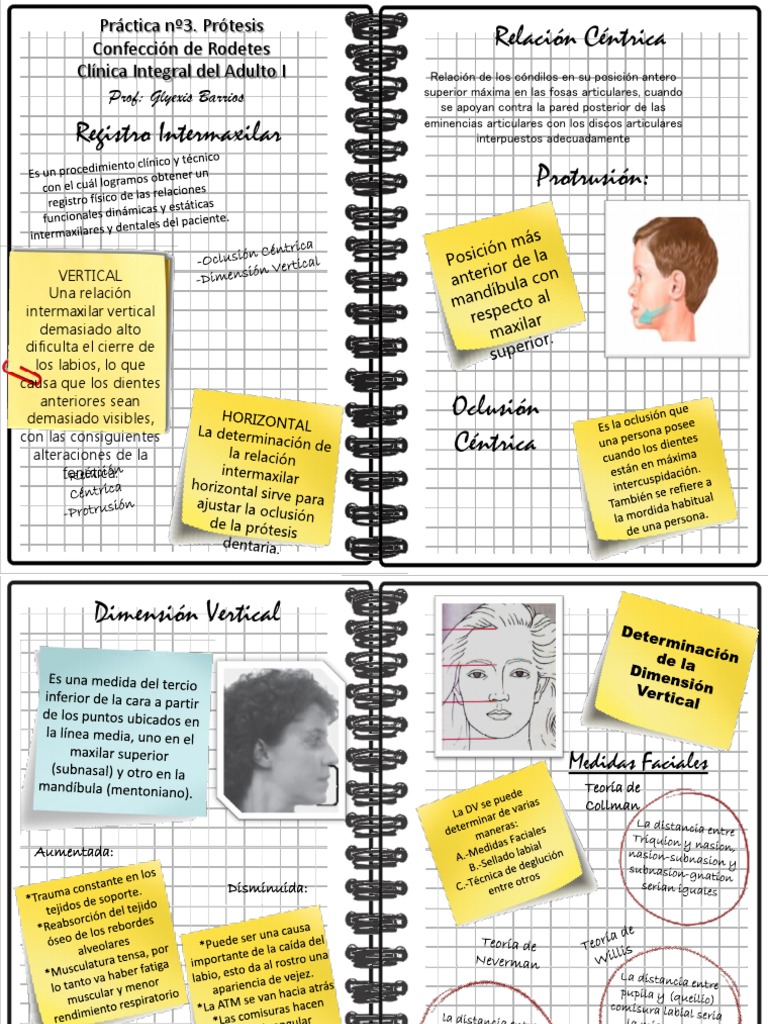 Práctica nº3. Prótesis
Confección de Rodetes
Clínica Integral del Adulto I
Prof: Glyexis Barrios
Registro Intermaxilar
Es un procedimiento clínico y técnico
con el cuál logramos obtener un
registro físico de las relaciones
funcionales dinámicas y estáticas
intermaxilares y dentales del paciente.
-Oclusión Céntrica
-Dimensión Vertical
VERTICAL
Una relación
intermaxilar vertical
demasiado alto
dificulta el cierre de
los labios, lo que
causa que los dientes
anteriores sean
demasiado visibles,
con las consiguientes
alteraciones de la
Céntrica
-Protrusión
HORIZONTAL
La determinación de
la relación
intermaxilar
horizontal sirve para
ajustar la oclusión
de la prótesis
dentaria.
Relación Céntrica
Relación de los cóndilos en su posición antero
superior máxima en las fosas articulares, cuando
se apoyan contra la pared posterior de las
eminencias articulares con los discos articulares
interpuestos adecuadamente
Protrusión:
Posición más
anterior de la
mandíbula con
respecto al
maxilar
superior.
Oclusión
Céntrica
Es la oclusión que
una persona posee
cuando los dientes
están en máxima
intercuspidación.
También se refiere a
la mordida habitual
de una persona.
Dimensión Vertical
Es una medida del tercio
inferior de la cara a partir
de los puntos ubicados en
la línea media, uno en el
maxilar superior
(subnasal) y otro en la
mandíbula (mentoniano).
Aumentada:
*Trauma constante en los
tejidos de soporte.
*Reabsorción del tejido
óseo de los rebordes
alveolares
*Musculatura tensa, por
lo tanto va haber fatiga
muscular y menor
rendimiento respiratorio
Disminuida:
*Puede ser una causa
importante de la caída del
labio, esto da al rostro una
apariencia de vejez.
*La ATM se van hacia atrás
*Las comisuras hacen
Determinación
de la
Dimensión
Vertical
Medidas Faciales
La DV se puede
determinar de varias
maneras:
A.-Medidas Faciales
B.-Sellado labial
C.-Técnica de deglución
entre otros
Teoría de
Collman
La distancia entre
Triquion y nasion,
nasion-subnasion y
subnasion-gnation
serían iguales
Teoría de
Neverman
La distancia entre
Teoría de
Willis
La distancia entre
pupila y (queilio)
comisura labial sería